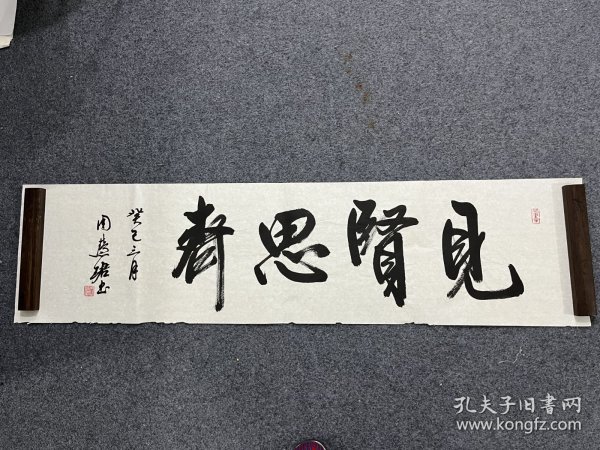 見賢思齊
癸巳三月
周慧珺书
孔夫子旧書网
www.kongfz.com